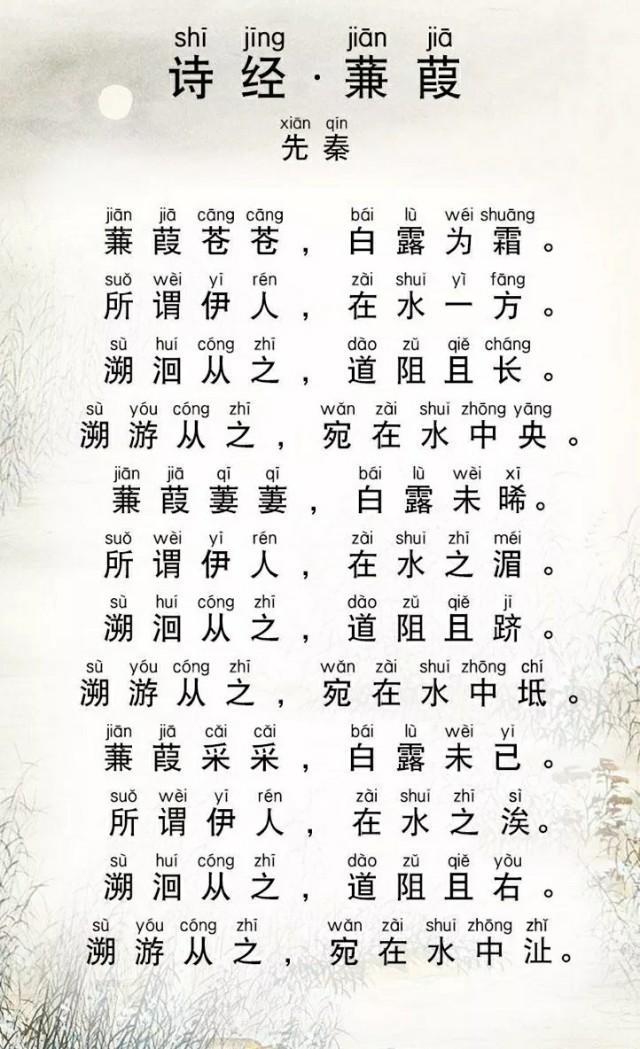 shī jīng jiān jiā
诗经·蒹葭
xiān qín
先秦
jiān jiā cāng cāng bái lù wéi shuāng
蒹葭苍苍，白露为霜。
suǒ wèi yī rén zài shuǐ yì fāng
所谓伊人，在水一方。
sù huí cóng zhī dào zǔ qiě cháng
溯洄从之，道阻且长。
sù yóu cóng zhī wǎn zài shuǐ zhōng yāng
溯游从之，宛在水中央。
jiān jiā qī qī bái lù wèi xī
蒹葭萋萋，白露未晞。
suǒ wèi yī rén zài shuǐ zhī méi
所谓伊人，在水之湄。
sù huí cóng zhī dào zǔ qiě jī
溯洄从之，道阻且跻。
sù yóu cóng zhī wǎn zài shuǐ zhōng chí
溯游从之，宛在水中坻。
jiān jiā cǎi cǎi bái lù wèi yǐ
蒹葭采采，白露未已。
suǒ wèi yī rén zài shuǐ zhī sì
所谓伊人，在水之涘。
sù huí cóng zhī dào zǔ qiě yòu
溯洄从之，道阻且右。
sù yóu cóng zhī wǎn zài shuǐ zhōng zhǐ
溯游从之，宛在水中沚。